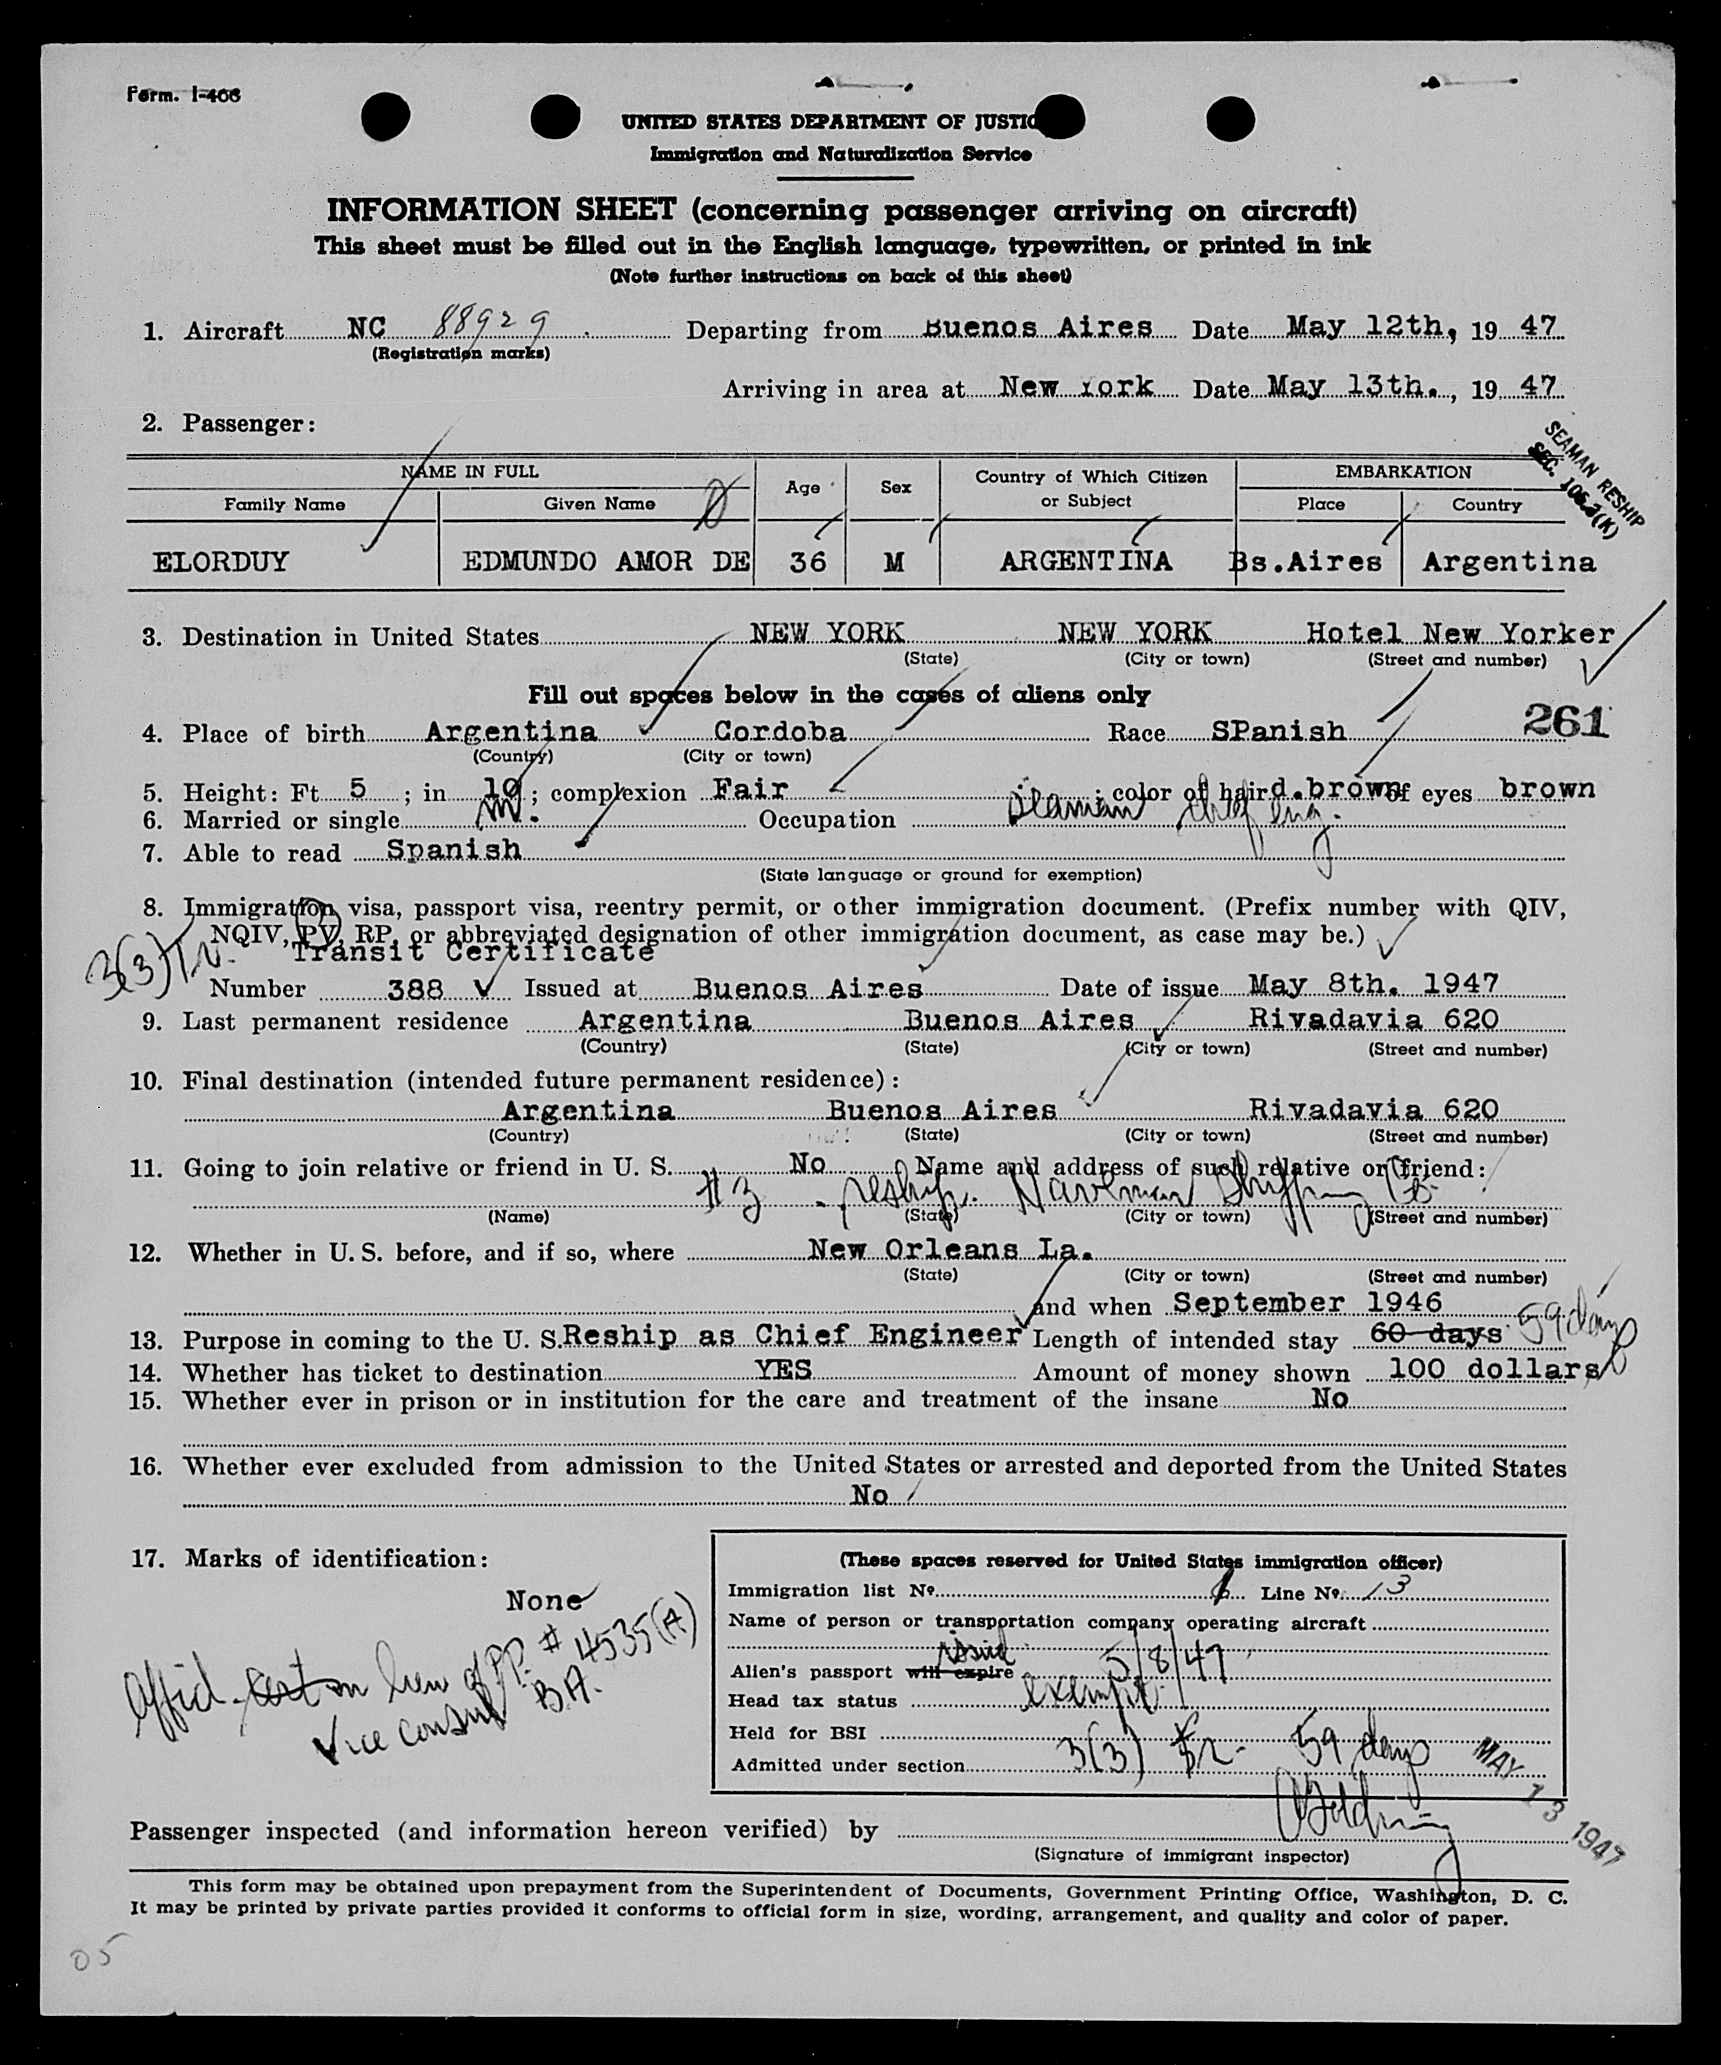 Form. I-466
UNITED STATES DEPARTMENT OF JUSTIC
Immigration and Naturalization Service
INFORMATION SHEET (concerning passenger arriving on aircraft)
This sheet must be filled out in the English language, typewritten, or printed in ink
(Note further instructions on back of this sheet)
1. Aircraft NC 88929 Departing from Buenos Aires Date May 12th, 19 47
(Registration marks)
Arriving in area at New York Date May 13th., 19 47
2. Passenger:
SEAMAN RESHIP
SEC. 105.3(K)
NAME IN FULL Age Sex Country of Which Citizen or Subject EMBARKATION
Family Name Given Name Place Country
ELORDUY EDMUNDO AMOR DE 36 M ARGENTINA Bs.Aires Argentina
3. Destination in United States NEW YORK NEW YORK Hotel New Yorker
(State) (City or town) (Street and number)
Fill out spaces below in the cases of aliens only
261
4. Place of birth Argentina Cordoba Race SPanish
(Country) (City or town)
5. Height: Ft 5 ; in 10 ; complexion Fair ; color of hair d.brown of eyes brown
6. Married or single M. Occupation Seaman chief eng.
7. Able to read Spanish
(State language or ground for exemption)
8. Immigration visa, passport visa, reentry permit, or other immigration document. (Prefix number with QIV,
NQIV, PV, RP, or abbreviated designation of other immigration document, as case may be.)
3(3) T.V. Transit Certificate
Number 388 Issued at Buenos Aires Date of issue May 8th. 1947
9. Last permanent residence Argentina Buenos Aires Rivadavia 620
(Country) (State) (City or town) (Street and number)
10. Final destination (intended future permanent residence):
Argentina Buenos Aires Rivadavia 620
(Country) (State) (City or town) (Street and number)
11. Going to join relative or friend in U. S. No Name and address of such relative or friend:
#3 reship. Shipping Co.
(Name) (State) (City or town) (Street and number)
12. Whether in U. S. before, and if so, where New Orleans La.
(State) (City or town) (Street and number)
and when September 1946
13. Purpose in coming to the U. S. Reship as Chief Engineer Length of intended stay 60 days 59 days
14. Whether has ticket to destination YES Amount of money shown 100 dollars
15. Whether ever in prison or in institution for the care and treatment of the insane No
16. Whether ever excluded from admission to the United States or arrested and deported from the United States
No
17. Marks of identification:
None
Offid. cert in lieu of P.P. # 4535(A)
Vice Consul B.A.
(These spaces reserved for United States immigration officer)
Immigration list No. Line No. 13
Name of person or transportation company operating aircraft
issued
Alien's passport will expire 5/8/47
Head tax status exempt
Held for BSI
Admitted under section 3(3) 59 days
MAY 13 1947
Passenger inspected (and information hereon verified) by
(Signature of immigrant inspector)
This form may be obtained upon prepayment from the Superintendent of Documents, Government Printing Office, Washington, D. C.
It may be printed by private parties provided it conforms to official form in size, wording, arrangement, and quality and color of paper.
05